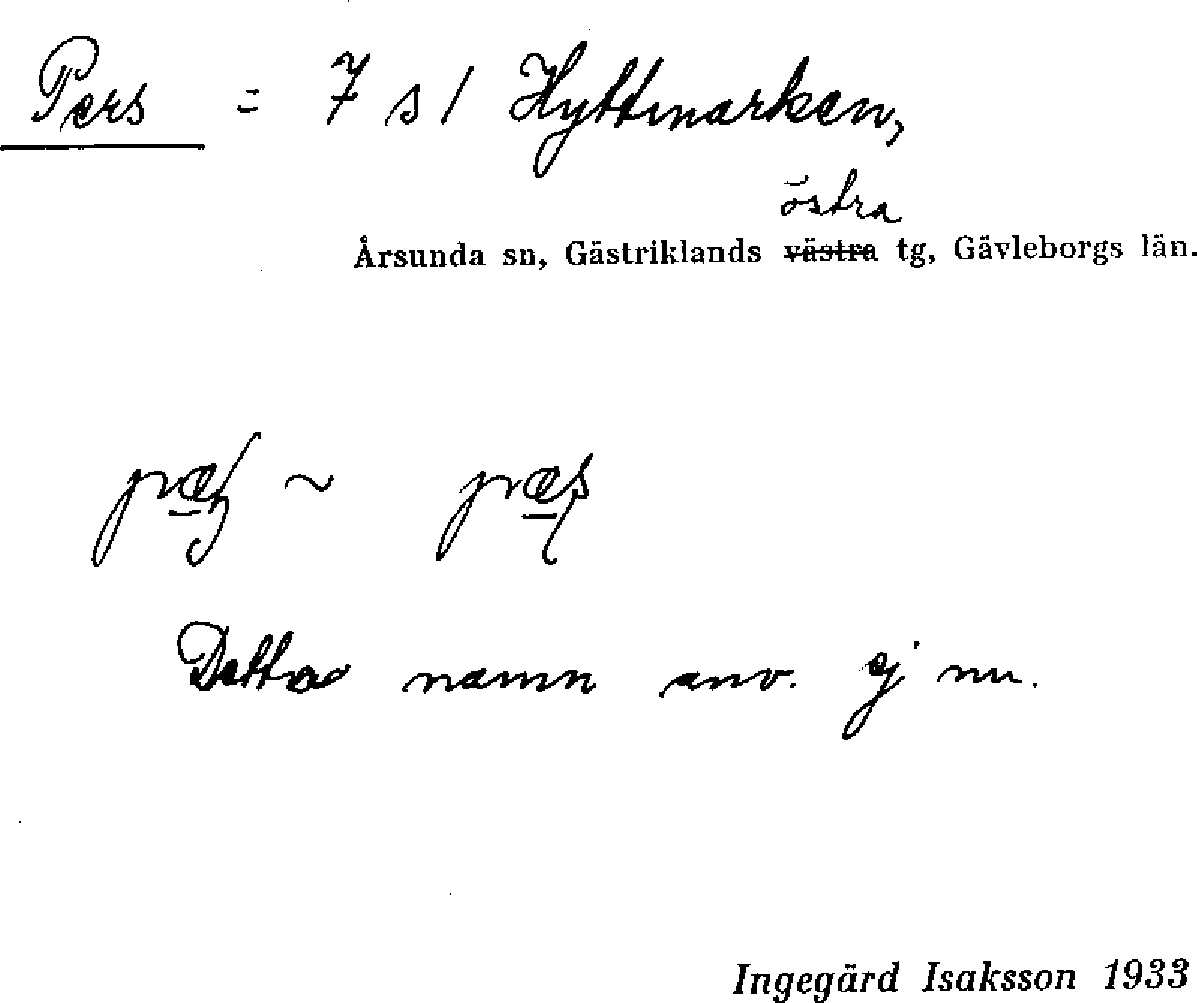 Pers = 7 s / Hyttmarken,
östra
Årsunda sn, Gästriklands västra tg, Gävleborgs län.
~
Detta namn anv. ej nu.
Ingegärd Isaksson 1933